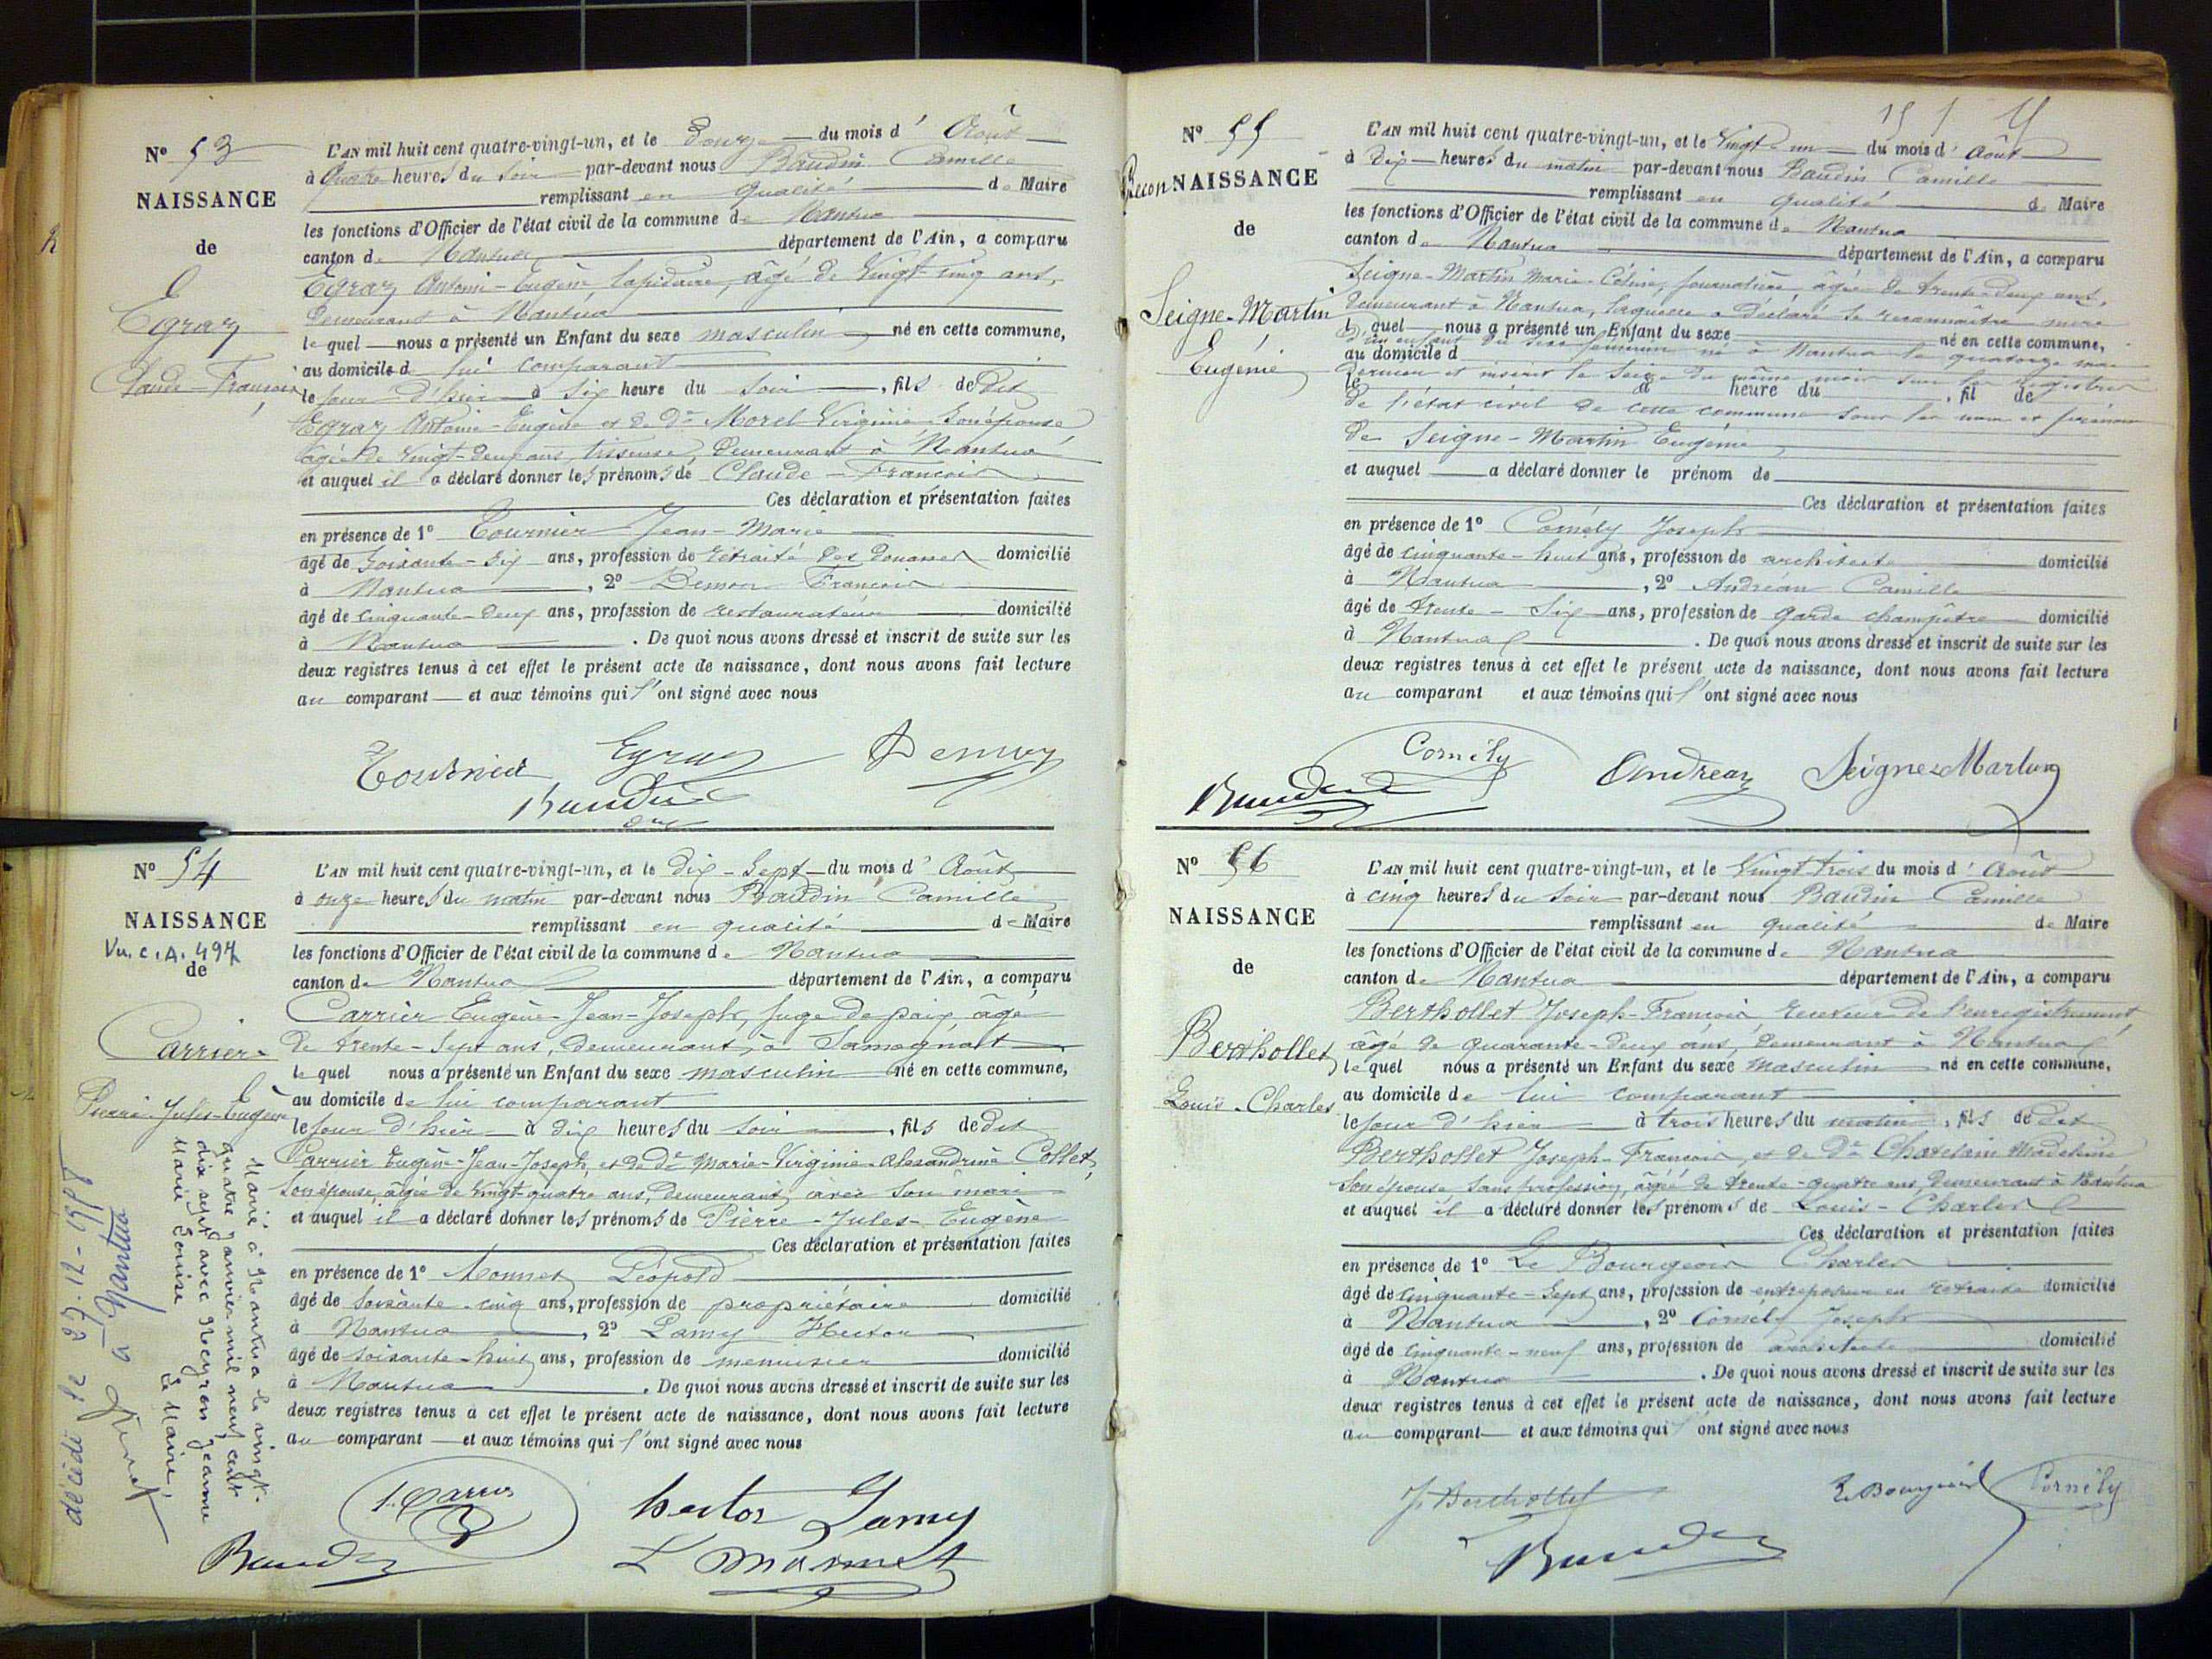 N° 53
NAISSANCE
de
Egraz
Claude-François
L'AN mil huit cent quatre-vingt-un, et le Douze du mois d' Août
à Quatre heures du soir par-devant nous Baudin Camille
remplissant en qualité de Maire
les fonctions d'Officier de l'état civil de la commune de Nantua
canton de Nantua département de l'Ain, a comparu
Egraz Antoine-Eugène, lapidaire, âgé de Vingt cinq ans,
demeurant à Nantua
lequel nous a présenté un Enfant du sexe masculin né en cette commune,
au domicile de lui comparant
le jour d'hier à six heure du soir, fils de dit
Egraz Antoine-Eugène et de De Morel Virginie son épouse
âgée de Vingt-deux ans, tisseuse, demeurant à Nantua
et auquel il a déclaré donner les prénoms de Claude-François
Ces déclaration et présentation faites
en présence de 1° Tournier Jean-Marie
âgé de soixante-dix ans, profession de retraité des Douanes domicilié
à Nantua, 2° François
âgé de cinquante-deux ans, profession de restaurateur domicilié
à Nantua. De quoi nous avons dressé et inscrit de suite sur les
deux registres tenus à cet effet le présent acte de naissance, dont nous avons fait lecture
au comparant et aux témoins qui l'ont signé avec nous
Tournier Egraz
Baudin
N° 54
NAISSANCE
Vu. C. A. 497
de
Carrier
Pierre-Jules-Eugène
Marié à Nantua le vingt-
quatre janvier mil neuf cent
dix sept avec Neyren Jeanne
Marie Louise Le Maire,
décédé le 27-12-
à Nantua
L'AN mil huit cent quatre-vingt-un, et le dix-sept du mois d' Août
à onze heures du matin par-devant nous Baudin Camille
remplissant en qualité de Maire
les fonctions d'Officier de l'état civil de la commune de Nantua
canton de Nantua département de l'Ain, a comparu
Carrier Eugène-Jean-Joseph, juge de paix, âgé
de trente-sept ans, demeurant à Samognat
lequel nous a présenté un Enfant du sexe masculin né en cette commune,
au domicile de lui comparant
le jour d'hier à dix heures du soir, fils de dit
Carrier Eugène-Jean-Joseph, et de De Marie-Virginie-Alexandrine Collet,
son épouse, âgée de vingt-quatre ans, demeurant avec son mari
et auquel il a déclaré donner les prénoms de Pierre-Jules-Eugène
Ces déclaration et présentation faites
en présence de 1° Monnet Léopold
âgé de soixante-cinq ans, profession de propriétaire domicilié
à Nantua, 2° Lamy Hector
âgé de soixante-huit ans, profession de menuisier domicilié
à Nantua. De quoi nous avons dressé et inscrit de suite sur les
deux registres tenus à cet effet le présent acte de naissance, dont nous avons fait lecture
au comparant et aux témoins qui l'ont signé avec nous
hector Lamy
Baudin L Monnet
N° 55
Recon NAISSANCE
de
Seigne-Martin
Eugénie
L'AN mil huit cent quatre-vingt-un, et le Vingt un du mois d' Août
à dix heures du matin par-devant nous Baudin Camille
remplissant en qualité de Maire
les fonctions d'Officier de l'état civil de la commune de Nantua
canton de Nantua département de l'Ain, a comparu
Seigne-Martin Marie-Céline, journalière, âgée de trente-deux ans,
demeurant à Nantua, laquelle a déclaré se reconnaître mère
l quel nous a présenté un Enfant du sexe né en cette commune,
d'un enfant du sexe féminin né à Nantua le quatorze mai
au domicile d
dernier et inscrit le seize du même mois sur les registres
le à heure du , fil de
de l'état civil de cette commune sous les nom et prénom
de Seigne-Martin Eugénie
et auquel a déclaré donner le prénom de
Ces déclaration et présentation faites
en présence de 1° Cornély Joseph
âgé de cinquante-huit ans, profession de architecte domicilié
à Nantua, 2° Andréan Camille
âgé de trente-six ans, profession de garde champêtre domicilié
à Nantua. De quoi nous avons dressé et inscrit de suite sur les
deux registres tenus à cet effet le présent acte de naissance, dont nous avons fait lecture
au comparant et aux témoins qui l'ont signé avec nous
Cornély Andrean Seigne Martin
Baudin
N° 56
NAISSANCE
de
Berthollet
Louis-Charles
L'AN mil huit cent quatre-vingt-un, et le Vingt trois du mois d' Août
à cinq heures du soir par-devant nous Baudin Camille
remplissant en qualité de Maire
les fonctions d'Officier de l'état civil de la commune de Nantua
canton de Nantua département de l'Ain, a comparu
Berthollet Joseph-François, receveur de l'enregistrement,
âgé de quarante-deux ans, demeurant à Nantua
lequel nous a présenté un Enfant du sexe masculin né en cette commune,
au domicile de lui comparant
le jour d'hier à trois heures du matin, fils de dit
Berthollet Joseph-François, et de De Chatelain Madeleine
son épouse sans profession, âgée de trente-quatre ans, demeurant à Nantua
et auquel il a déclaré donner les prénoms de Louis-Charles
Ces déclaration et présentation faites
en présence de 1° Le Bourgeois Charles
âgé de cinquante-sept ans, profession de entreposeur en retraite domicilié
à Nantua, 2° Cornély Joseph
âgé de cinquante-neuf ans, profession de architecte domicilié
à Nantua. De quoi nous avons dressé et inscrit de suite sur les
deux registres tenus à cet effet le présent acte de naissance, dont nous avons fait lecture
au comparant et aux témoins qui l'ont signé avec nous
J. Berthollet Le Bourgeois Cornély
Baudin